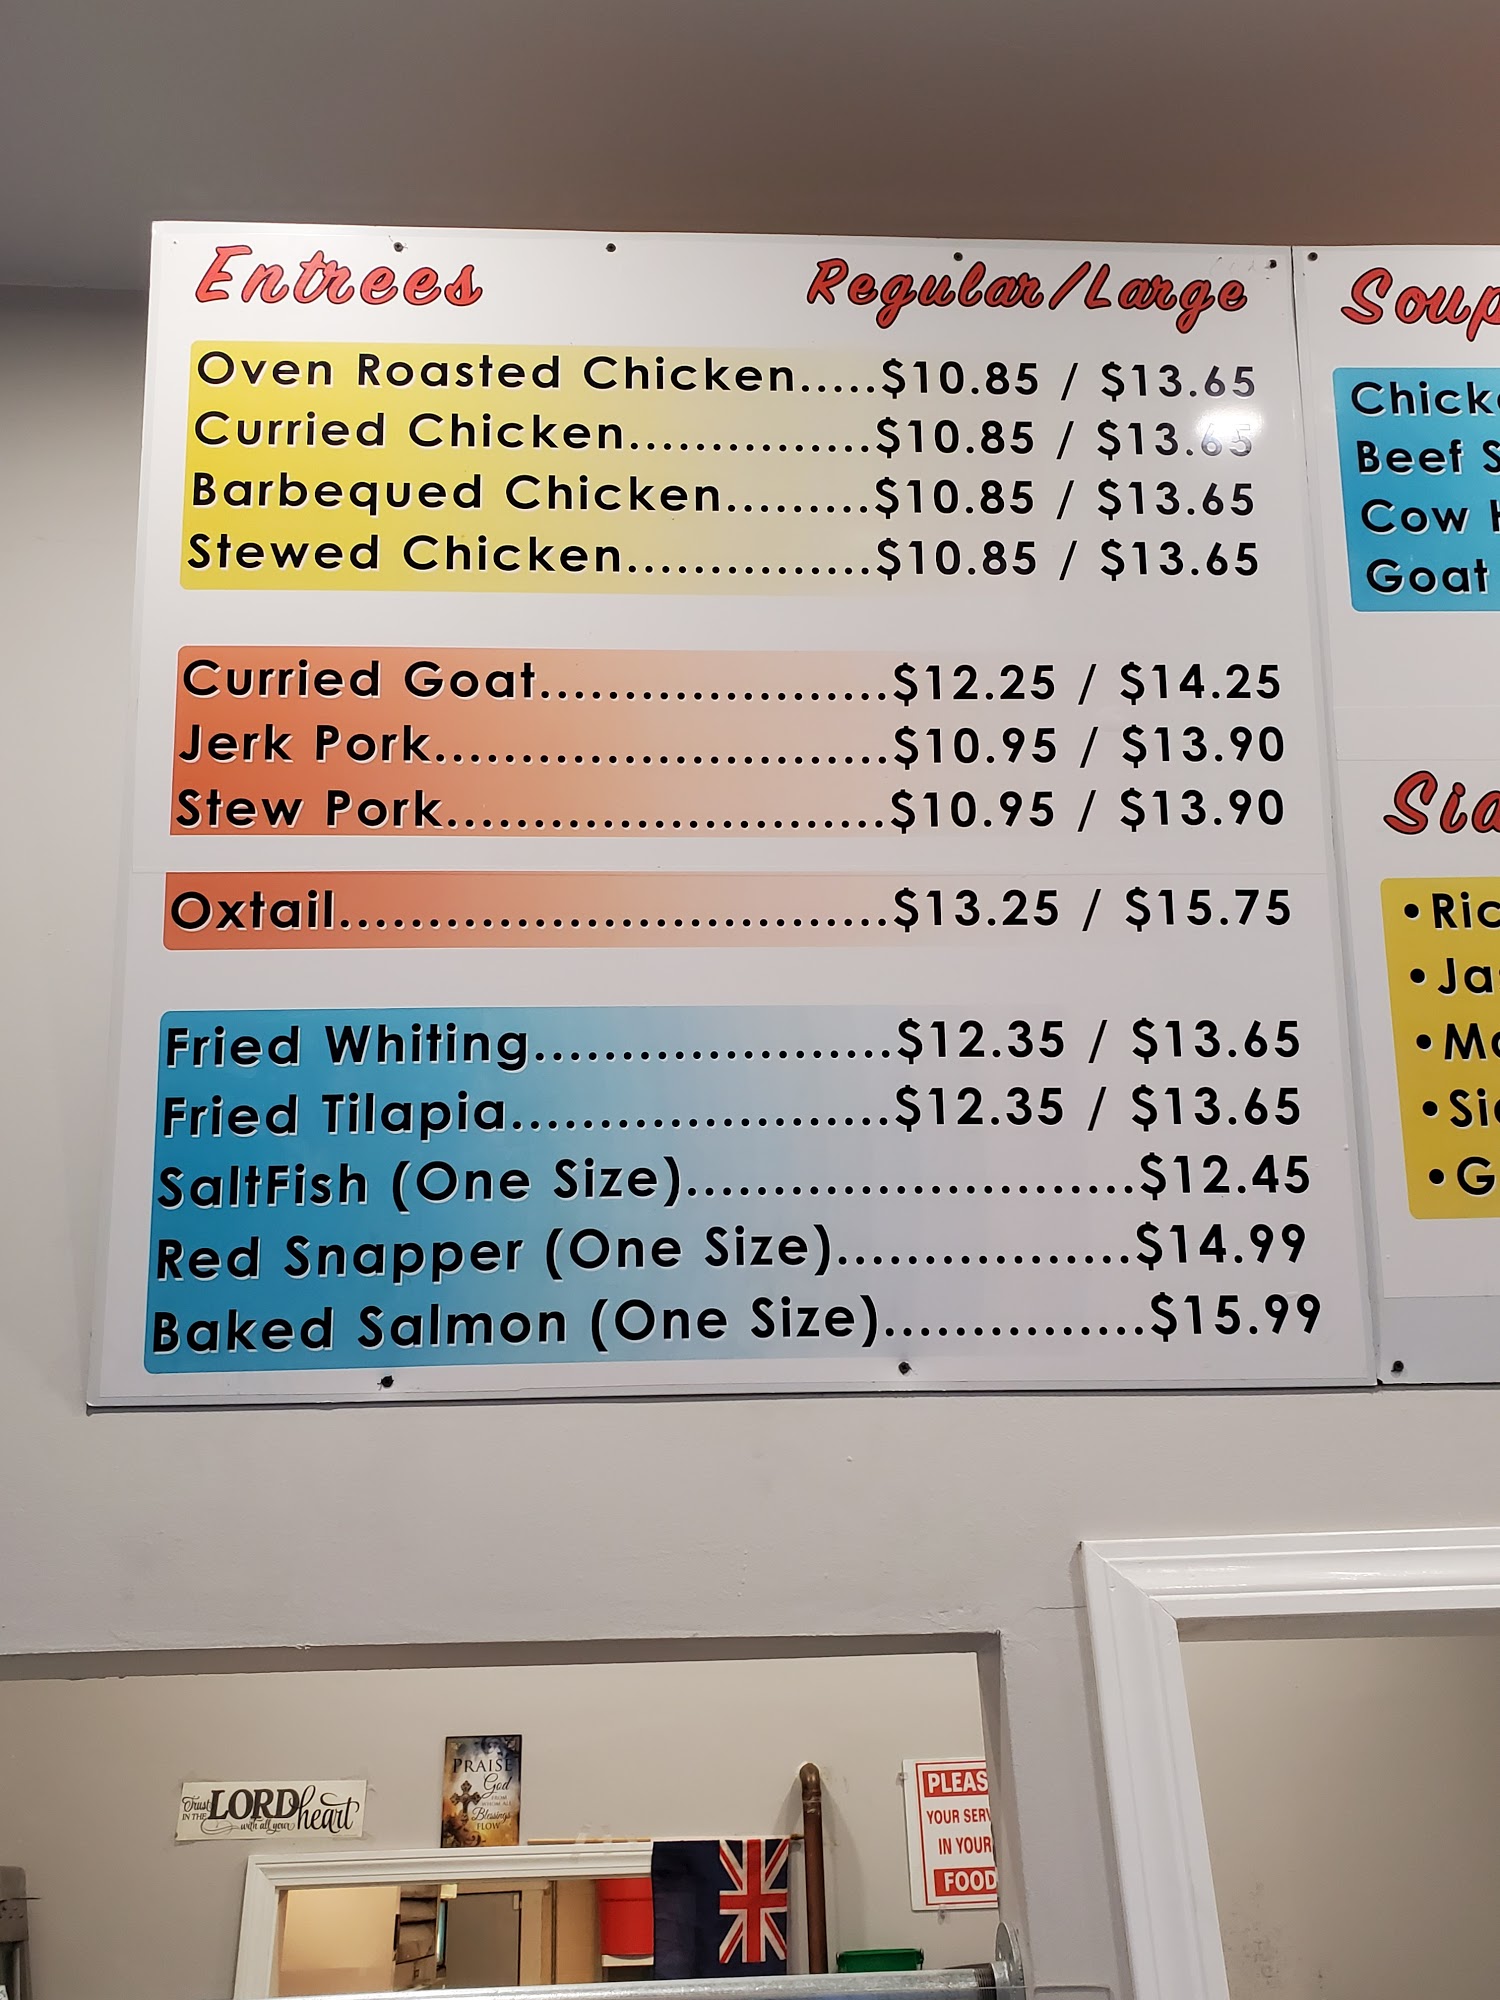 Entrees Regular/Large
Oven Roasted Chicken.....$10.85 / $13.65
Curried Chicken...............$10.85 / $13.65
Barbequed Chicken.........$10.85 / $13.65
Stewed Chicken...............$10.85 / $13.65
Curried Goat......................$12.25 / $14.25
Jerk Pork............................$10.95 / $13.90
Stew Pork...........................$10.95 / $13.90
Oxtail..................................$13.25 / $15.75
Fried Whiting......................$12.35 / $13.65
Fried Tilapia.......................$12.35 / $13.65
SaltFish (One Size)...........................$12.45
Red Snapper (One Size)..................$14.99
Baked Salmon (One Size)................$15.99
Soup
Chick
Beef S
Cow
Goat
Sid
•Ric
•Ja
•Mo
•Sid
•G
Trust
IN THE LORD
with all your heart
PRAISE
God
FROM
WHOM ALL
Blessings
FLOW
PLEAS
YOUR SERV
IN YOUR
FOOD